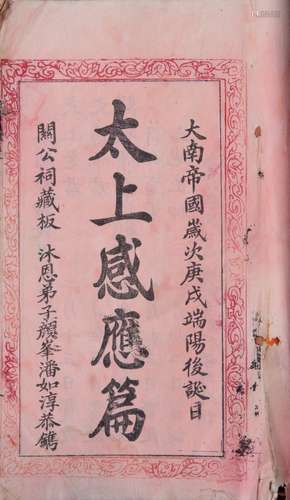 大南帝國歲次庚戌端陽後誕日
太上感應篇
關公祠藏板 沐恩弟子顏峯潘如淳恭鐫